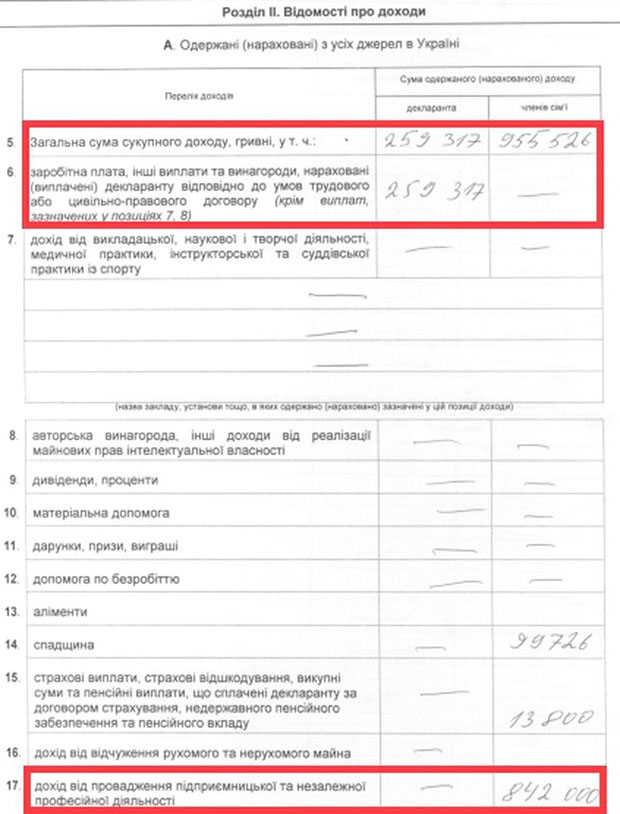 Розділ II. Відомості про доходи
А. Одержані (нараховані) з усіх джерел в Україні
Перелік доходів
Сума одержаного (нарахованого) доходу
декларанта
членів сім'ї
5. Загальна сума сукупного доходу, гривні, у т. ч.: 259 317 955 526
6. заробітна плата, інші виплати та винагороди, нараховані
(виплачені) декларанту відповідно до умов трудового
або цивільно-правового договору (крім виплат,
зазначених у позиціях 7, 8) 259 317 —
7. дохід від викладацької, наукової і творчої діяльності,
медичної практики, інструкторської та суддівської
практики із спорту — —
—
—
—
(назва закладу, установи тощо, в яких одержано (нараховано) зазначені у цій позиції доходи)
8. авторська винагорода, інші доходи від реалізації
майнових прав інтелектуальної власності — —
9. дивіденди, проценти — —
10. матеріальна допомога — —
11. дарунки, призи, виграші — —
12. допомога по безробіттю — —
13. аліменти
14. спадщина — 99726
15. страхові виплати, страхові відшкодування, викупні
суми та пенсійні виплати, що сплачені декларанту за
договором страхування, недержавного пенсійного
забезпечення та пенсійного вкладу — 13 800
16. дохід від відчуження рухомого та нерухомого майна —
17. дохід від провадження підприємницької та незалежної
професійної діяльності — 842 000